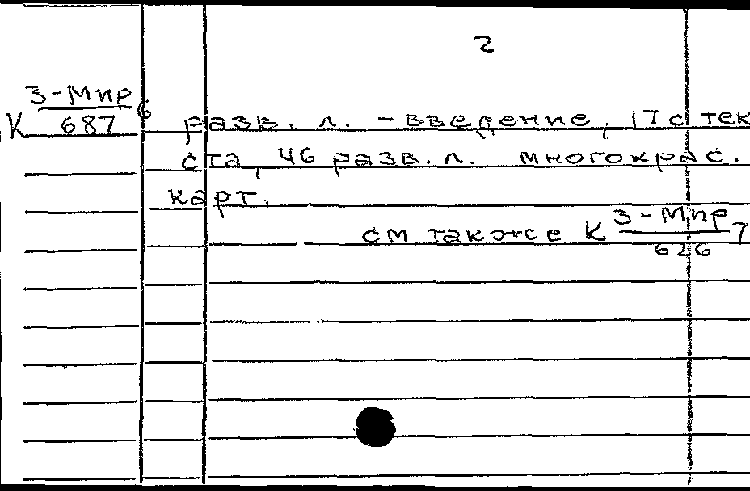 2
К 3-Мир/687 6
разв. л. - введение, 17 с тек
ста, 46 разв. л. многокрас.
карт.
см также К 3-Мир/626 7